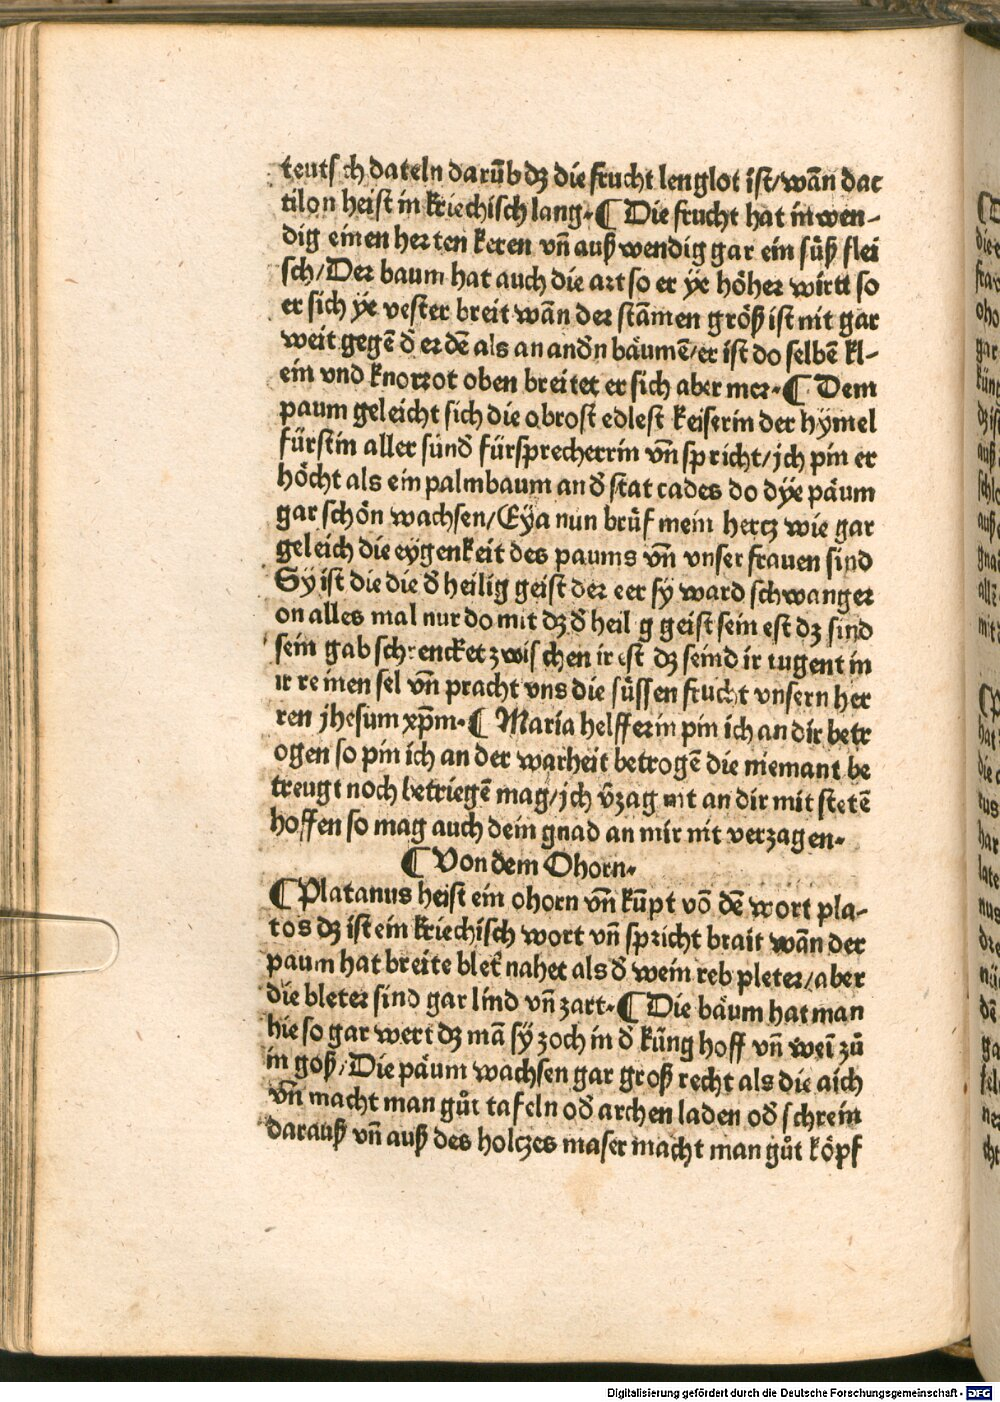 teutsch dateln darūb dz die frucht lenglot ist/wān dac
tilon heist in kriechisch lang. ¶ Die frucht hat inwen-
dig einen herten keren vn̄ außwendig gar ein süß flei
sch/Der baum hat auch die art so er ÿe höher wirtt so
er sich ÿe vester breit wān der stāmen größ ist nit gar
weit gegē đ erdē als an anđn bäumē/er ist do selbē kl-
ein vnd knorrot oben breitet er sich aber mer. ¶ Dem
paum geleicht sich die obrost edlest keiserin der hymel
fürstin aller sünđ fürsprecherrin vn̄ spricht/jch pin er
höcht als ein palmbaum an đ stat cades do dÿe päum
gar schön wachsen/Eÿa nun brüf mein hertz wie gar
geleich die eÿgenkeit des paums vn̄ vnser frauen sind
Sÿ ist die die đ heilig geist der eer sÿ ward schwanger
on alles mal nur do mit dz đ heil g geist sein est dz sind
sein gab schrencket zwischen ir est dz seind ir tugent in
ir reinen sel vn̄ pracht vns die süssen frucht vnsern her
ren jhesum xp̄m. ¶ Maria helfferin pin ich an dir betr
ogen so pin ich an der warheit betrogē die niemant be
treugt noch betriegē mag/jch v̄zag nit an dir mit stetē
hoffen so mag auch dein gnad an mir nit verzagen.
¶ Von dem Ohorn.
¶ Platanus heist ein ohorn vn̄ kūpt vō dē wort pla-
tos dz ist ein kriechisch wort vn̄ spricht brait wān der
paum hat breite blet̄ nahet als đ wein reb pleter/aber
die bleter sind gar lind vn̄ zart. ¶ Die bäum hat man
hie so gar wert dz mā sÿ zoch in đ küng hoff vn̄ weī zů
in goß/Die päum wachsen gar groß recht als die aich
vn̄ macht man gůt tafeln ođ archen laden ođ schrein
darauß vn̄ auß des holczes maser macht man gůt köpf
Digitalisierung gefördert durch die Deutsche Forschungsgemeinschaft - DFG